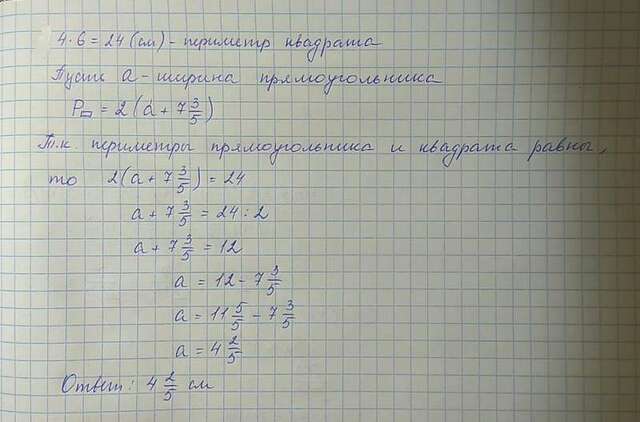 4 · 6 = 24 (см) - периметр квадрата
Пусть a - ширина прямоугольника
P▭ = 2 (a + 7 3/5)
Т.к. периметры прямоугольника и квадрата равны,
то 2(a + 7 3/5) = 24
a + 7 3/5 = 24 : 2
a + 7 3/5 = 12
a = 12 - 7 3/5
a = 11 5/5 - 7 3/5
a = 4 2/5
Ответ: 4 2/5 см